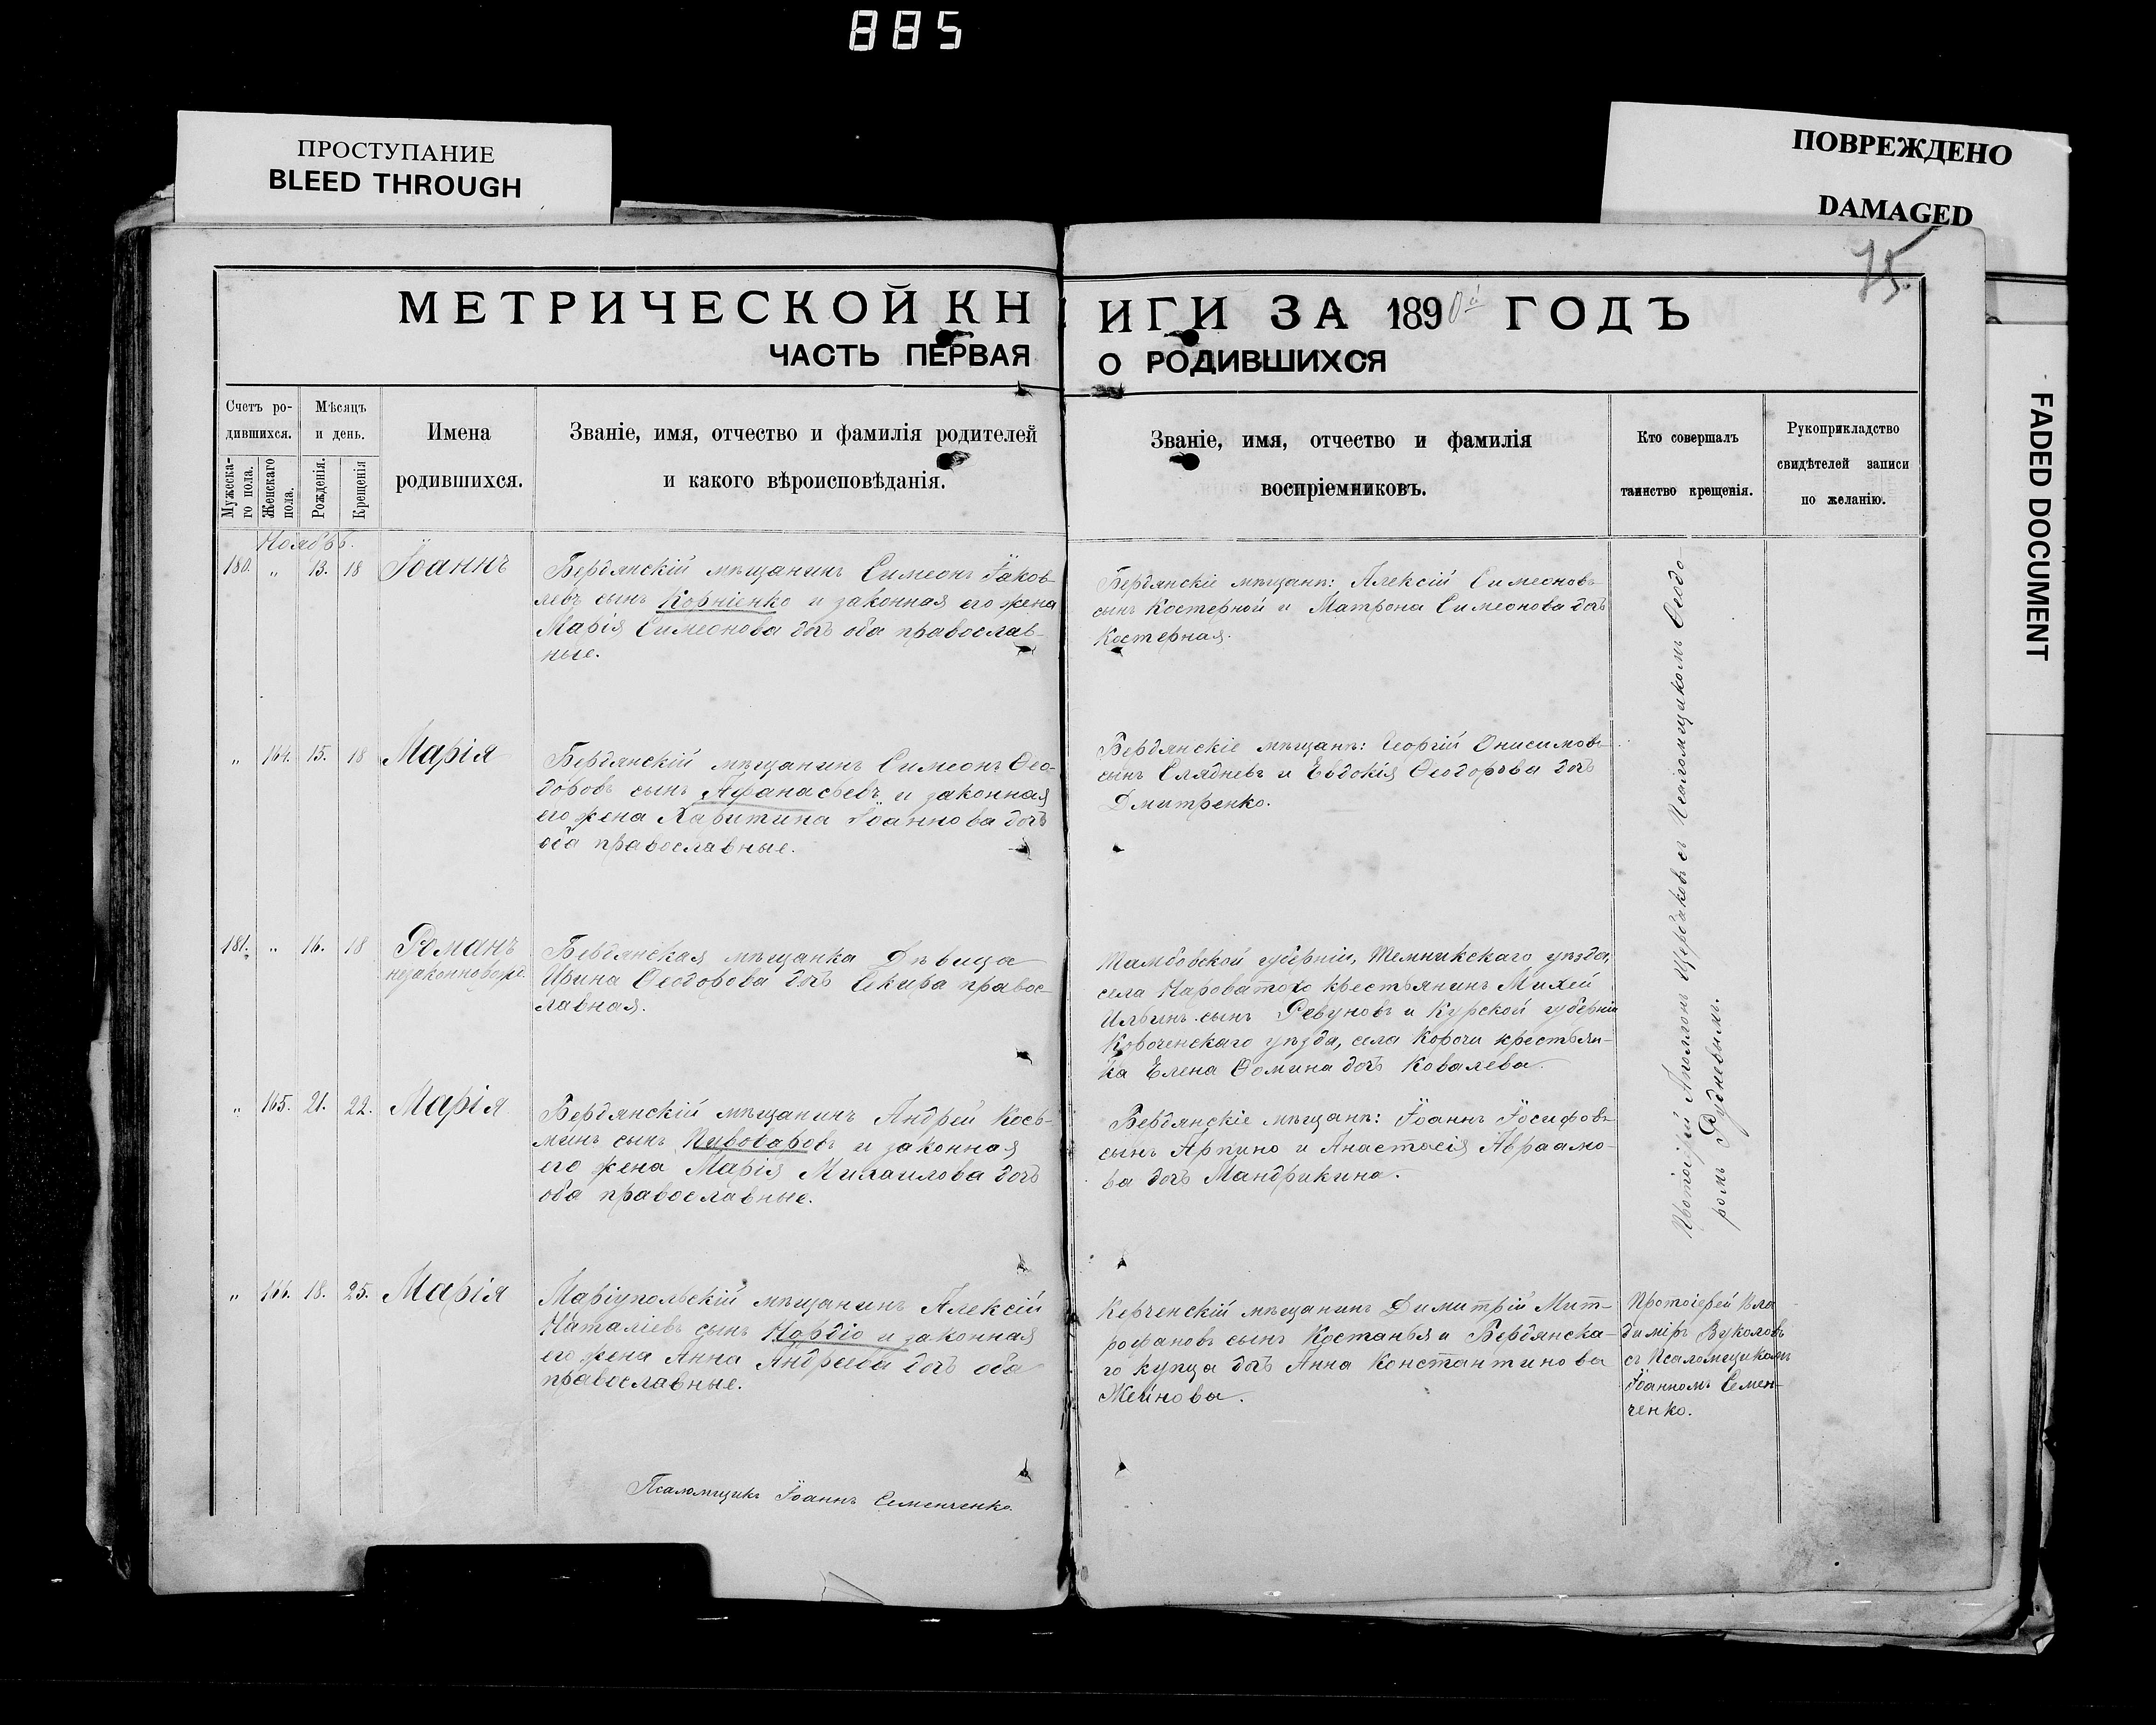 885
ПРОСТУПАНИЕ
BLEED THROUGH
ПОВРЕЖДЕНО
DAMAGED
FADED DOCUMENT
75.
МЕТРИЧЕСКОЙ КНИГИ ЗА 1890й ГОДЪ
ЧАСТЬ ПЕРВАЯ О РОДИВШИХСЯ
Счетъ ро-
дившихся.
Мужеска-
го пола.
Женскаго
пола.
Мѣсяцъ
и день.
Рожденія.
Крещенія
Имена
родившихся.
Званіе, имя, отчество и фамилія родителей
и какого вѣроисповѣданія.
Званіе, имя, отчество и фамилія
воспріемниковъ.
Кто совершалъ
таинство крещенія.
Рукоприкладство
свидѣтелей записи
по желанію.
Ноябрь.
180. „ 13. 18 Іоаннъ
Бердянскій мѣщанинъ Симеонъ Іаков-
левъ сынъ Корніенко и законная его жена
Марія Симеонова дочь оба православ-
ные.
Бердянскіе мѣщане: Алексій Симеоновъ
сынъ Костерной и Матрона Симеонова дочь
Костерная.
„ 164. 15. 18 Марія
Бердянскій мѣщанинъ Симеонъ Ѳео-
доровъ сынъ Афанасьевъ и законная
его жена Харитина Іоаннова дочь
оба православные.
Бердянскіе мѣщане: Георгій Онисимовъ
сынъ Слядневъ и Евдокія Ѳеодорова дочь
Дмитренко.
181. „ 16. 18 Романъ
незаконнорож.
Бердянская мѣщанка Дѣвица
Ирина Ѳеодорова дочь Секира правос-
лавная.
Тамбовской губерніи, Темникскаго уѣзда,
села Нароватого крестьянинъ Михей
Ильинъ сынъ Ревуновъ и Курской губерніи
Короченскаго уѣзда, села Корочи крестьян-
ка Елена Ѳомина дочь Ковалева.
„ 165. 21. 22. Марія
Бердянскій мѣщанинъ Андрей Кось-
минъ сынъ Пивоваровъ и законная
его жена Марія Михаилова дочь
оба православные.
Бердянскіе мѣщане: Іоаннъ Іосифовъ
сынъ Арпино и Анастасія Авраамо-
ва дочь Мандрикина.
Протоіерей Аполлонъ Щербаковъ съ Псаломщикомъ Ѳеодо-
ромъ Рудневымъ.
„ 166. 18. 25. Марія
Маріупольскій мѣщанинъ Алексій
Наталіевъ сынъ Нордіо и законная
его жена Анна Андреева дочь оба
православные.
Керченскій мѣщанинъ Димитрій Мит-
рофановъ сынъ Костанья и Бердянска-
го купца дочь Анна Константинова
Жейнова.
Протоіерей Вла
диміръ Вуколовъ
съ Псаломщикомъ
Іоанномъ Семен-
ченко.
Псаломщикъ Іоаннъ Семенченко.